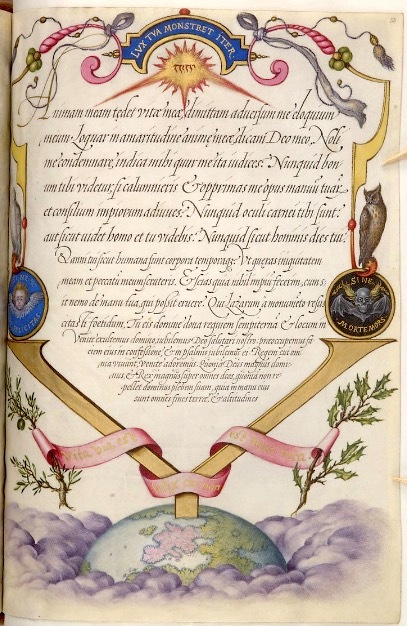 LVX TVA MONSTRET ITER
Animam meam tedet vitæ meæ, dimittam adversum me eloquium
meum. Loquar in amaritudine animæ meæ, dicam Deo meo, Noli
me condemnare, indica mihi quur me ita iudices. Nunquid bon
um tibi videtur, si calumnieris & opprimas me opus manuu tuar.
et consilium impiorum adiuves. Nunquid oculi carnei tibi sunt:
aut sicut videt homo et tu videbis. Nunquid sicut hominis dies tui
et anni tui sicut humana sunt corpora temporaq;. Ut queras iniquitatem
meam et peccatu meum scruteris. & scias quia nihil impiu fecerim, cum s
it nemo de manu tua, qui possit eruere. Qui Lazarum a monumento resus
citasti foetidum, Tu eis domine dona requiem sempiterna & locum in
Venite exultemus domino, iubilemus Deo salutari nostro: preoccupemus fa
ciem eius in confessione, & in psalmis iubilemus ei. Regem cui om
nia vivunt, venite adoremus. Quonia Deus magnus domi
nus, & Rex magnus super omnes deos, quonia non re
pellet dominus plebem suam, quia in manu eius
sunt omnes fines terræ, & altitudines
FELICITAS
SINE
MORTE MORS
vita
est